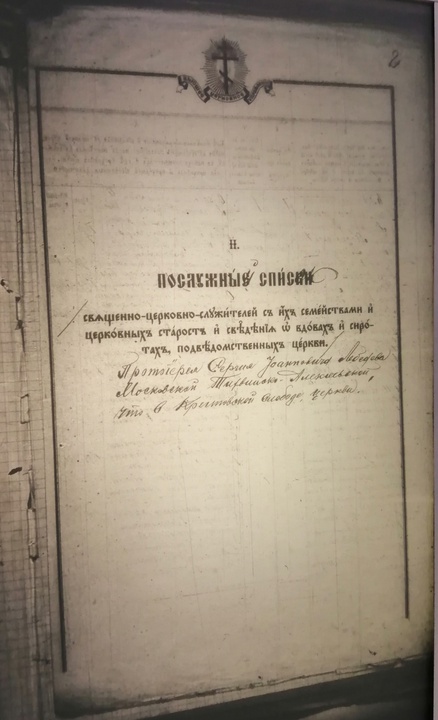 2
Н.
ПОСЛУЖНЫЕ СПИСКИ
священно-церковно-служителей съ ихъ семействами и
церковныхъ старостъ и свѣдѣнія ѡ вдовахъ и сиро-
тахъ, подвѣдомственныхъ церкви.
Протоіерея Сергія Іоанновича Лебедева
Московской Тихвинско- Алексѣевской,
что в слободѣ церкви.